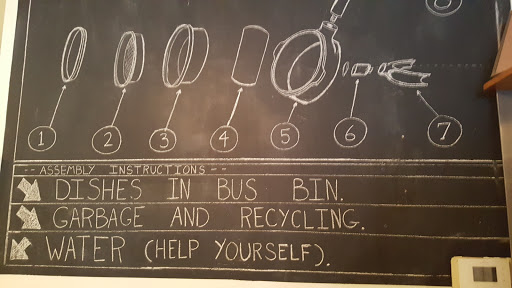 8
1 2 3 4 5 6 7
-- ASSEMBLY INSTRUCTIONS --
DISHES IN BUS BIN.
GARBAGE AND RECYCLING.
WATER (HELP YOURSELF).